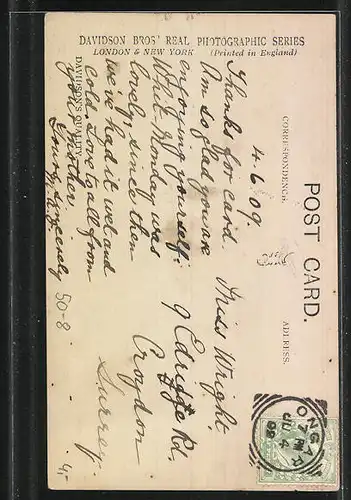 DAVIDSON BROS' REAL PHOTOGRAPHIC SERIES
LONDON & NEW YORK (Printed in England)
DAVIDSON'S QUALITY
POST CARD.
CORRESPONDENCE.
ADDRESS.
4.6.09.
Thanks for card.
I'm so glad you are
enjoying yourself.
Whit Monday was
lovely, since then
we've had it wet and
cold. Love to all from
yours sincerely
Miss Wright
9 Edridge Rd.
Croydon
Surrey.
50-8
ONGAR
7 PM
JU 4
09